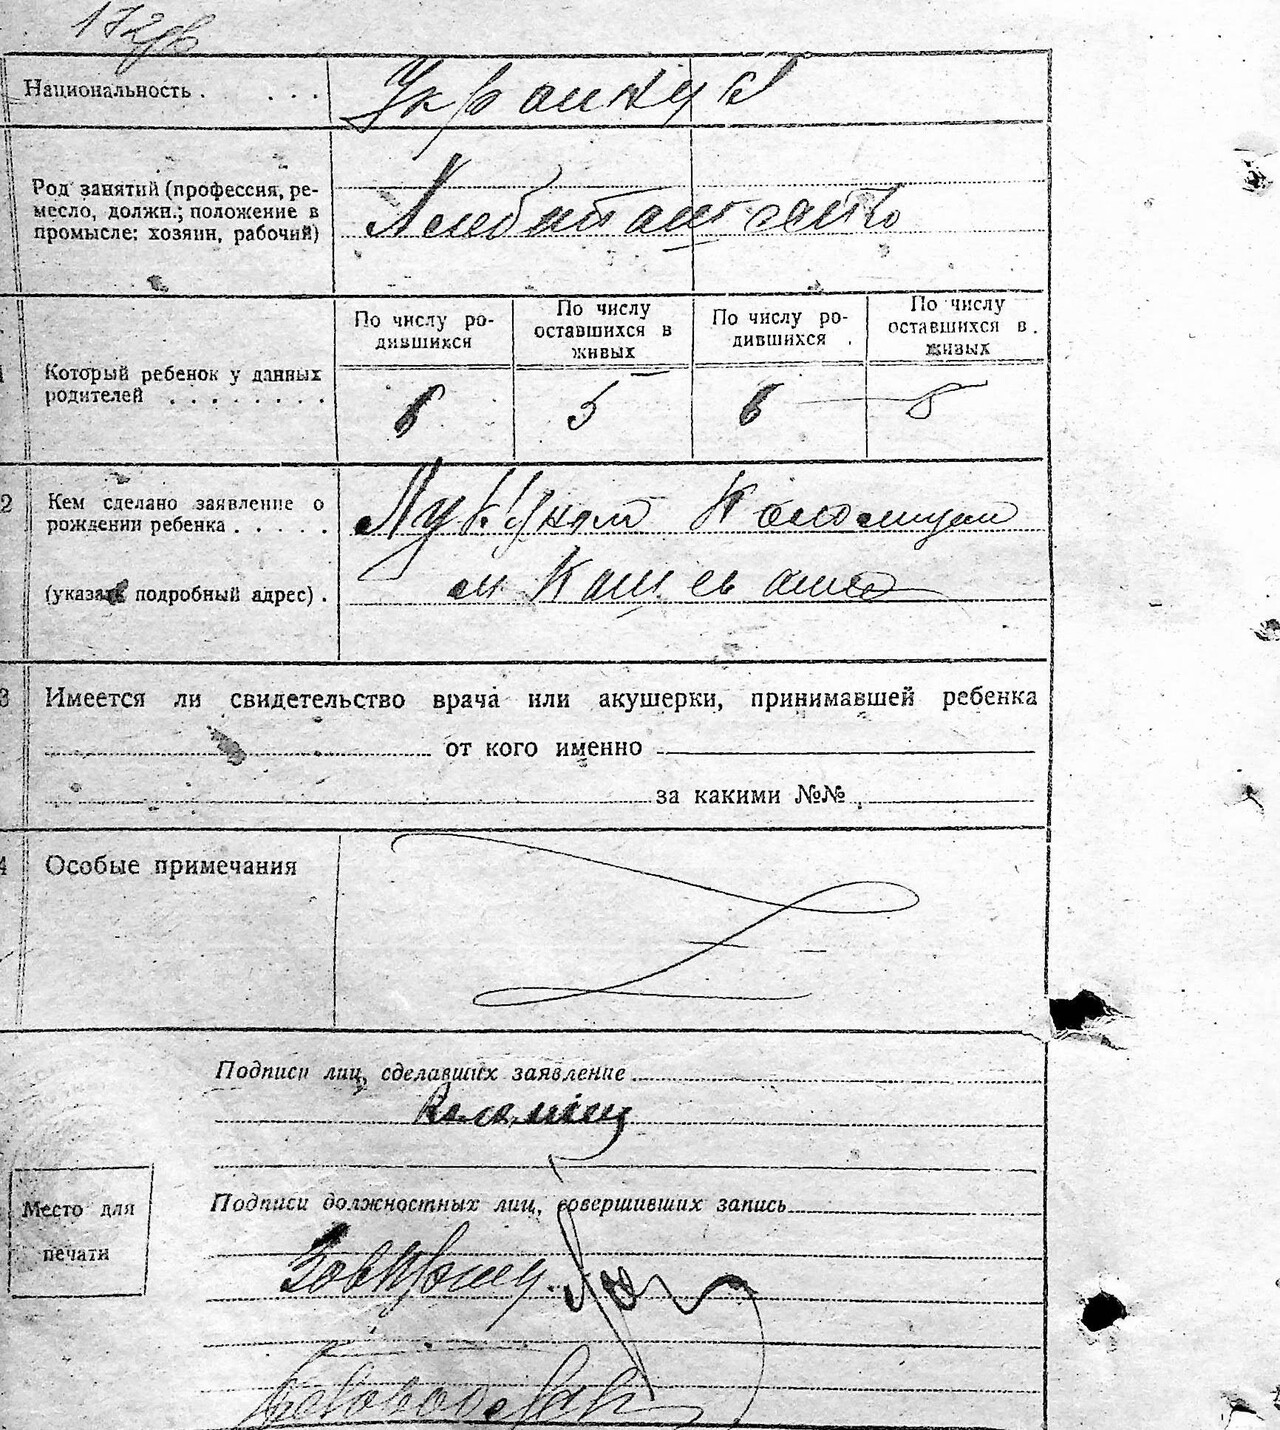 Национальность . . . .
Украинці
Род занятий (профессия, ре-
месло, должн.; положение в
промысле: хозяин, рабочий)
Хлебопашество
По числу ро-
дившихся
По числу
оставшихся в
живых
По числу ро-
дившихся
По числу
оставшихся в
живых
Который ребенок у данных
родителей . . . . . . . .
6 5 6 5
2 Кем сделано заявление о
рождении ребенка . . . . .
Коломицем
(указать подробный адрес) .
м
3 Имеется ли свидетельство врача или акушерки, принимавшей ребенка
от кого именно
за какими №№
4 Особые примечания
Подписи лиц, сделавших заявление
Коломіец
Место для
печати
Подписи должностных лиц, совершивших запись
Делопроизв